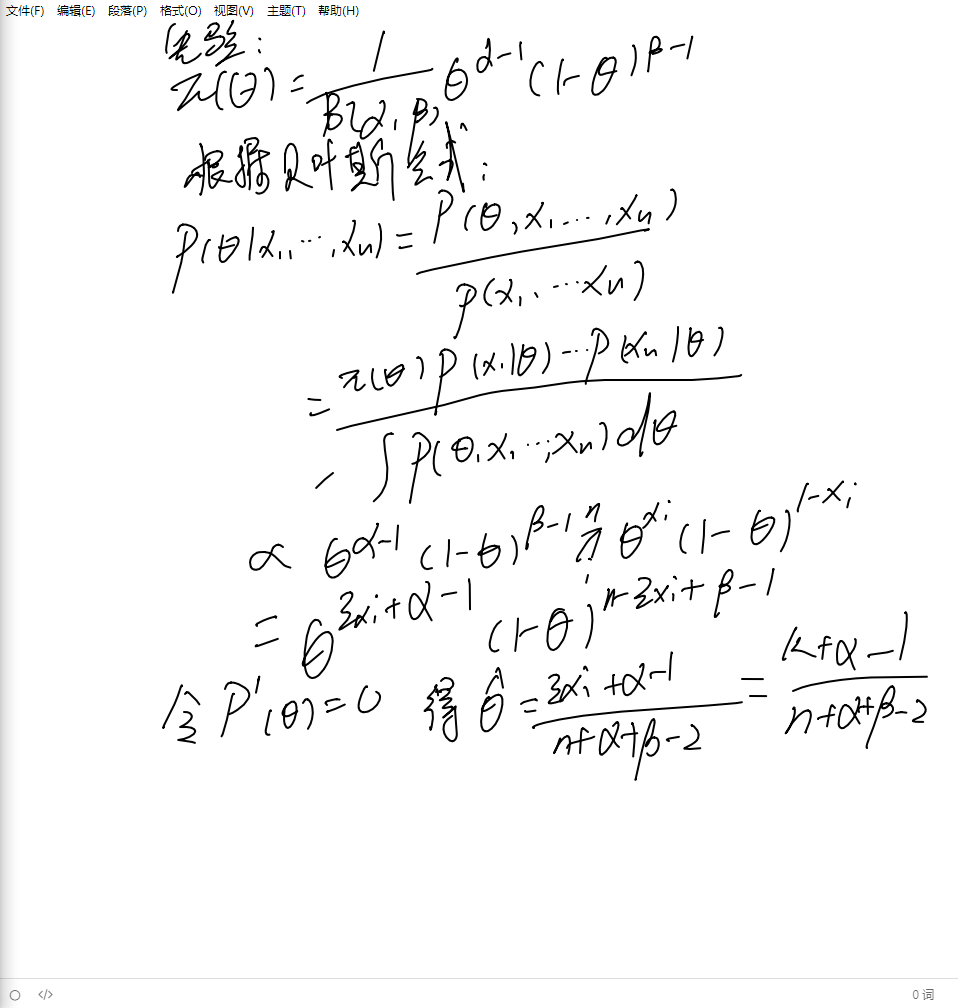 文件(F) 编辑(E) 段落(P) 格式(O) 视图(V) 主题(T) 帮助(H)
先验:
π(θ) = 1/B(α, β) θ^(α-1) (1-θ)^(β-1)
根据贝叶斯公式:
P(θ|x₁, ..., xₙ) = P(θ, x₁, ..., xₙ) / P(x₁, ... xₙ)
= π(θ) P(x₁|θ) ... P(xₙ|θ) / ∫ P(θ, x₁, ..., xₙ) dθ
∝ θ^(α-1) (1-θ)^(β-1) ∏ᵢⁿ θ^(xᵢ) (1-θ)^(1-xᵢ)
= θ^(Σxᵢ+α-1) (1-θ)^(n-Σxᵢ+β-1)
令 P'(θ) = 0 得 θ̂ = (Σxᵢ+α-1)/(n+α+β-2) = (k+α-1)/(n+α+β-2)
0 词